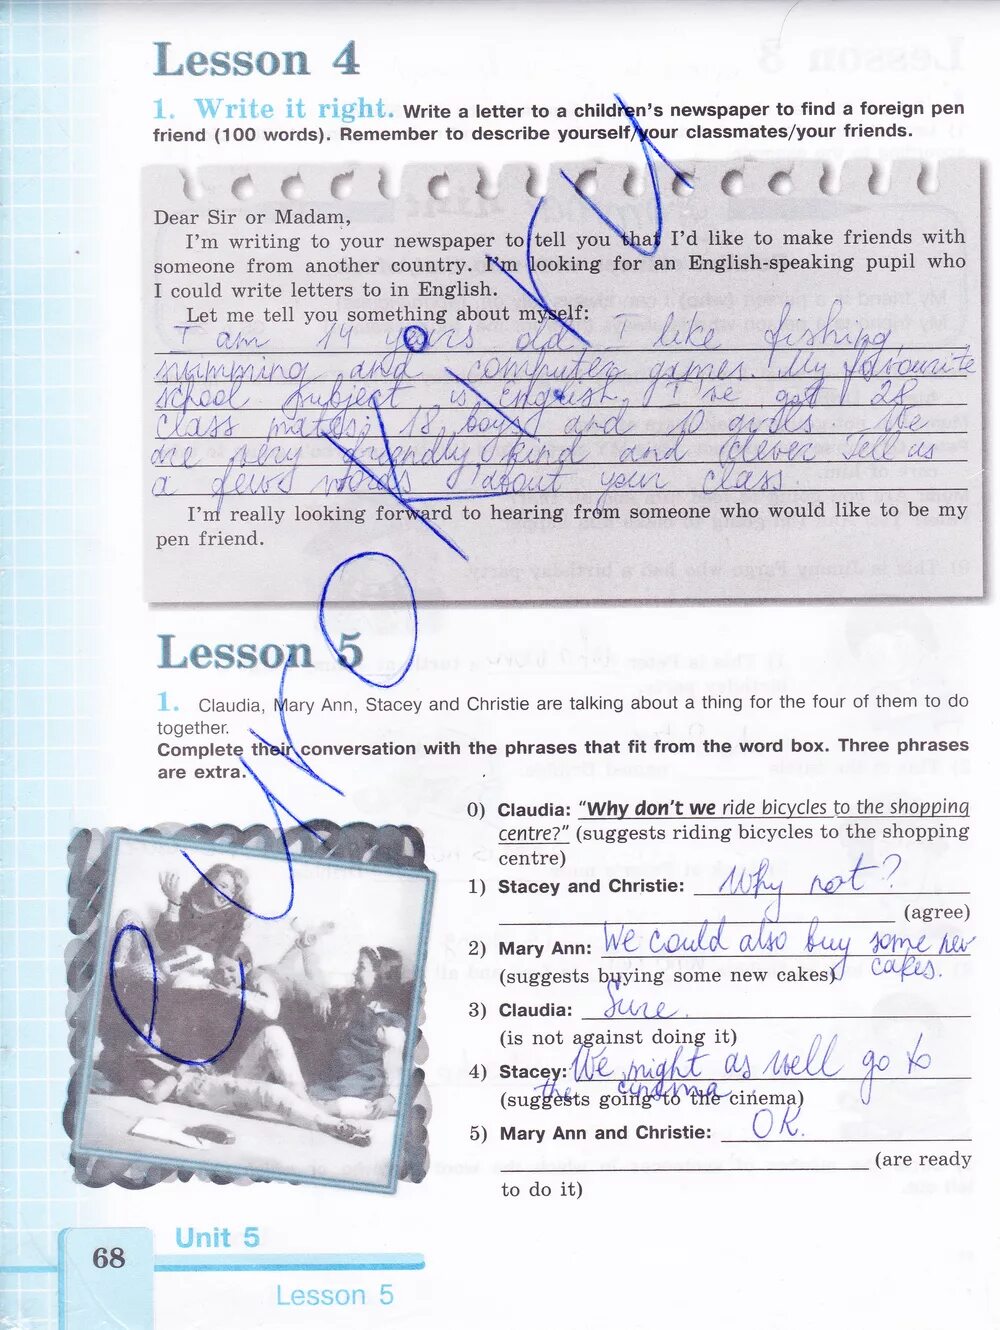 Lesson 4
1. Write it right. Write a letter to a children's newspaper to find a foreign pen
friend (100 words). Remember to describe yourself/your classmates/your friends.
Dear Sir or Madam,
I'm writing to your newspaper to tell you that I'd like to make friends with
someone from another country. I'm looking for an English-speaking pupil who
I could write letters to in English.
Let me tell you something about myself:
I am 14 years old. I like fishing,
swimming and computer games. My favourite
school subject is English. I've got 28
class mates: 18 boys and 10 girls. We
are very friendly, kind and clever. Tell us
a few words about your class.
I'm really looking forward to hearing from someone who would like to be my
pen friend.
Lesson 5
1. Claudia, Mary Ann, Stacey and Christie are talking about a thing for the four of them to do
together.
Complete their conversation with the phrases that fit from the word box. Three phrases
are extra.
0) Claudia: "Why don't we ride bicycles to the shopping
centre?" (suggests riding bicycles to the shopping
centre)
1) Stacey and Christie: Why not?
(agree)
2) Mary Ann: We could also buy some new
cakes.
(suggests buying some new cakes)
3) Claudia: Sure.
(is not against doing it)
4) Stacey: We might as well go to
the cinema
(suggests going to the cinema)
5) Mary Ann and Christie: OK.
(are ready
to do it)
68
Unit 5
Lesson 5